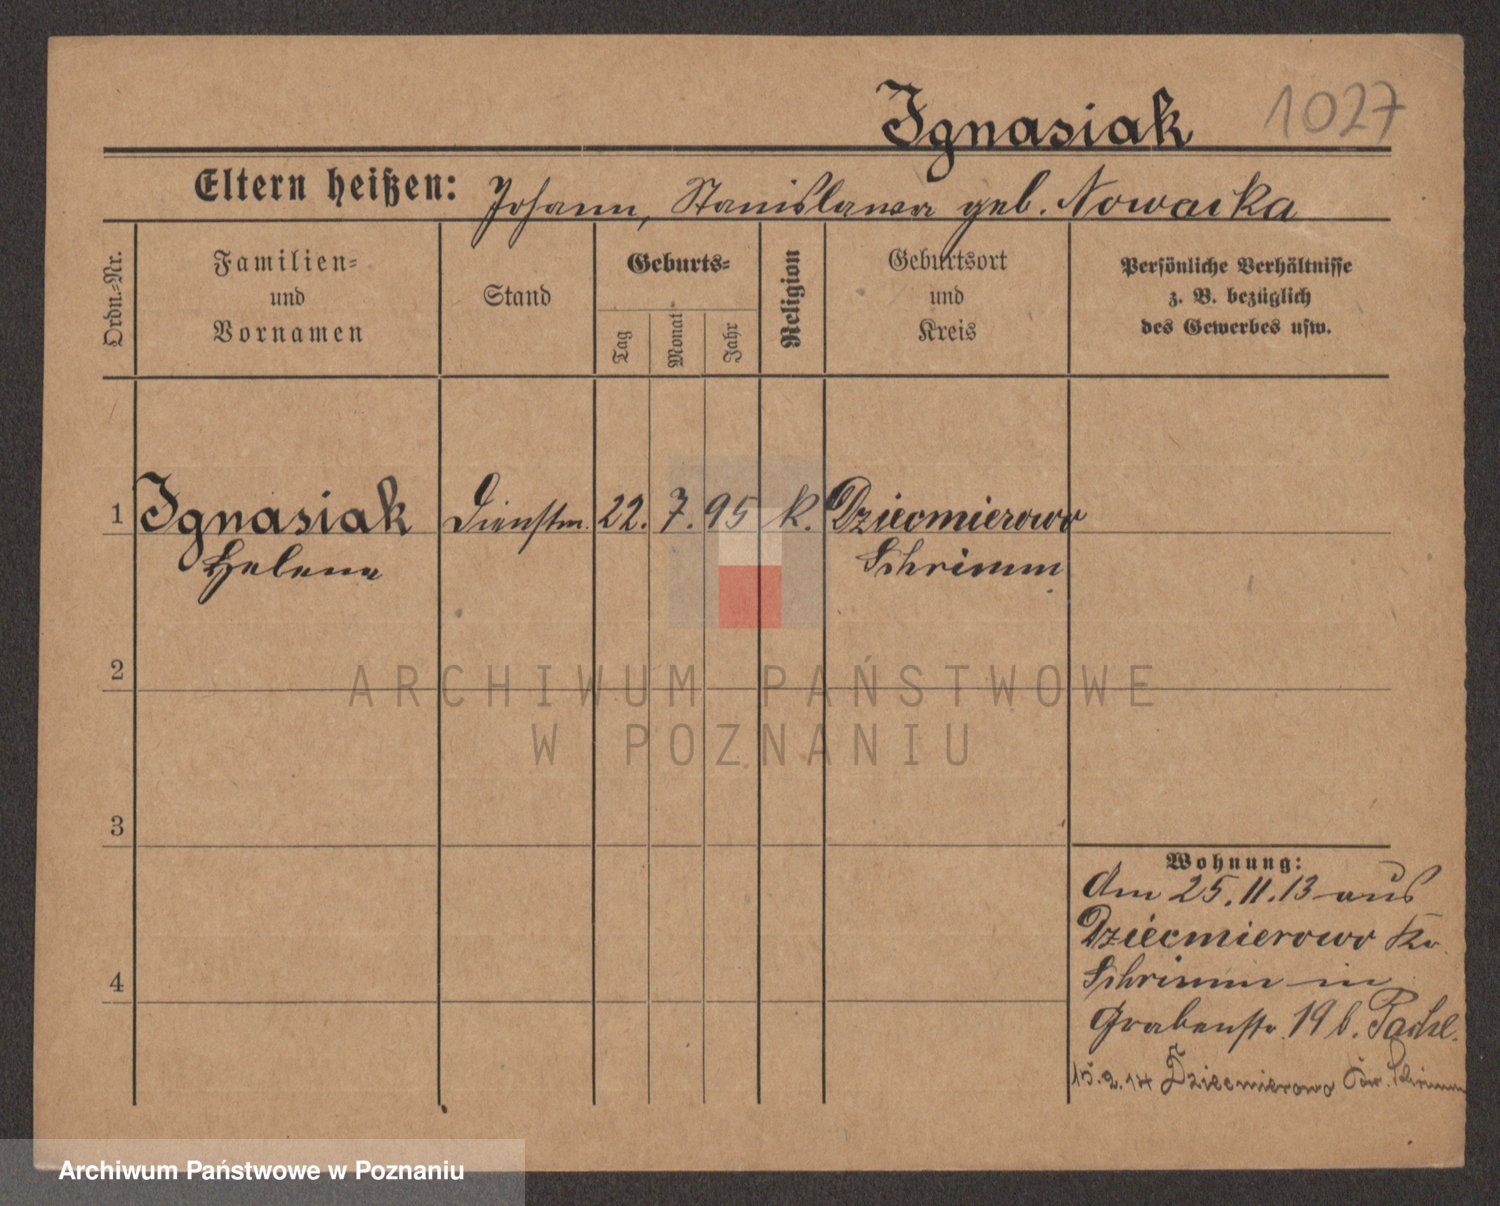 Ignasiak 1027
Eltern heißen: Johann, Stanislawa geb. Nowacka
Ordn.-Nr.
Familien-
und
Vornamen
Stand
Geburts-
Tag
Monat
Jahr
Religion
Geburtsort
und
Kreis
Persönliche Verhältnisse
z. B. bezüglich
des Gewerbes usw.
1 Ignasiak Dienstm. 22. 7. 95 k. Dziecmierowo
Helene Schrimm
2
ARCHIWUM PAŃSTWOWE
W POZNANIU
3
Wohnung:
Am 25.11.13 aus
Dziecmierowo Kr.
Schrimm in
4
Grabenstr. 19 b.
15.2.14 Dziecmierowo Schrimm
Archiwum Państwowe w Poznaniu